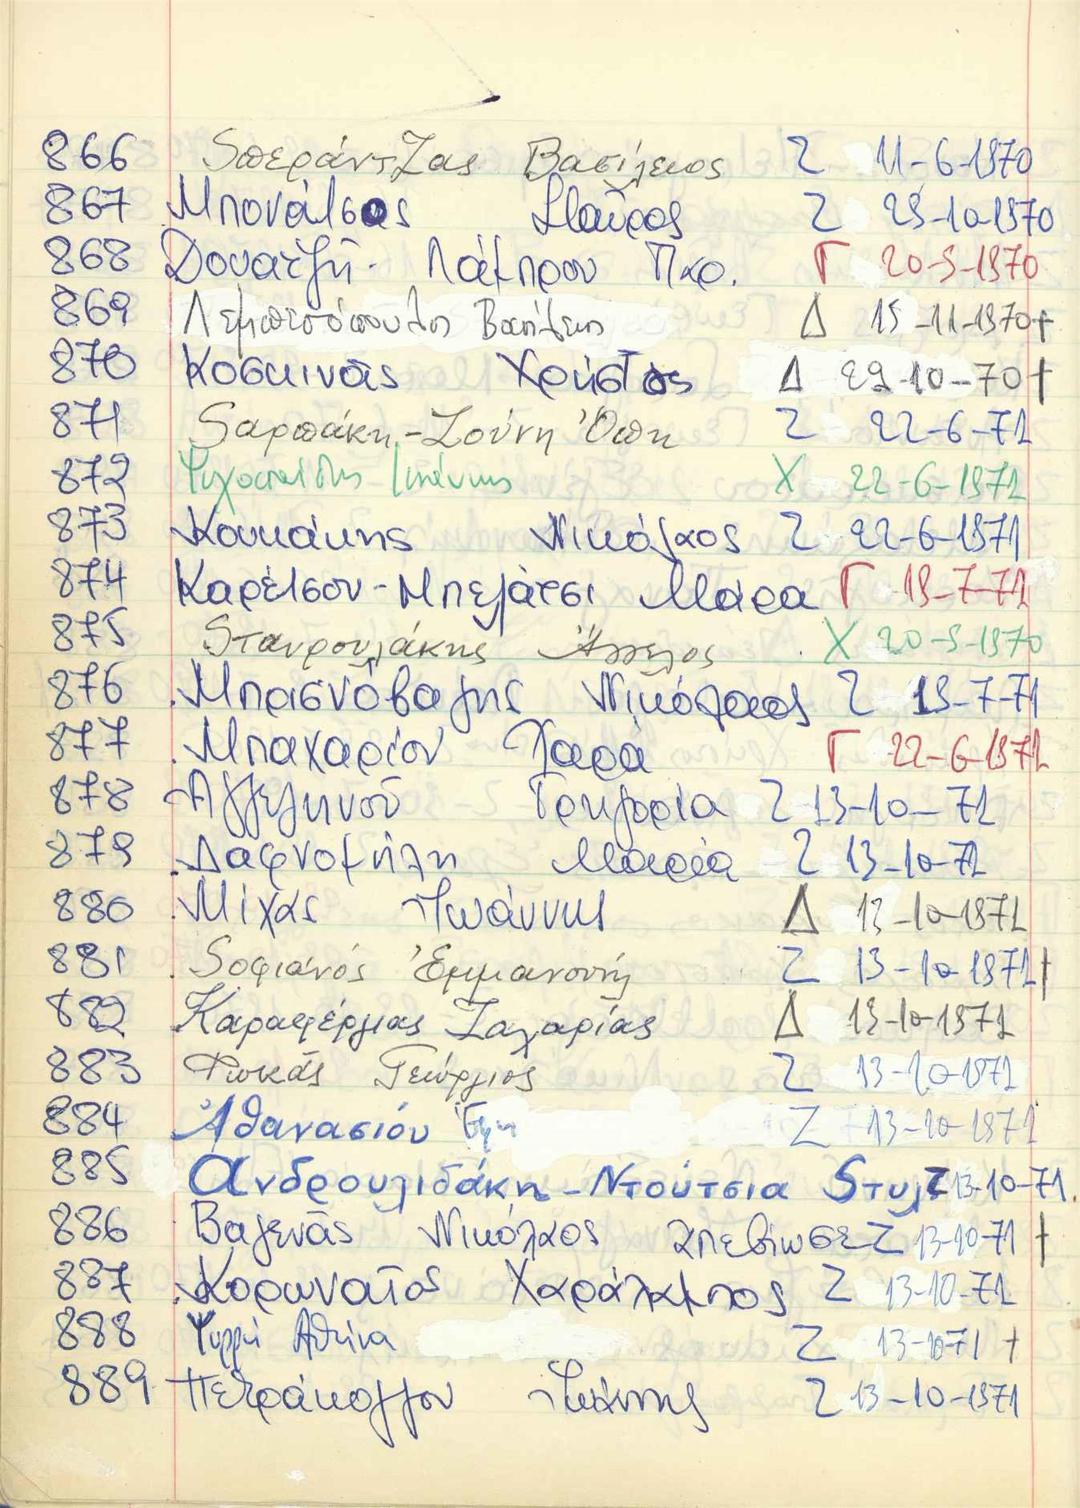 866 Sπεράντζας Βασίλειος Ζ 11-6-1970
867 Μπονάτσος Σταῦρος Ζ 29-10-1970
868 Δουατζῆ - Λάμπρου Παρ. Γ 20-9-1970
869 Λεμπεσόπουλος Βασίλης Δ 15-11-1970 †
870 Κοσκινᾶς Χρῆστος Δ 29-10-70 †
871 Sαρπάκη - Ζούνη Ὄπη Ζ 22-6-71
872 Ψυχοπαίδης Ἰωάννης Χ 22-6-1971
873 Κουκάκης Νικόλαος Ζ 22-6-1971
874 Καρέτσου - Μπελάτσι Μάρα Γ 19-7-71
875 Sταυρουλάκης Ἄγγελος Χ 20-9-1970
876 Μπρισνόβαλης Νικόλαος Ζ 19-7-71
877 Μπαχαρίου Χαρά Γ 22-6-1971
878 Ἀγγεληνοῦ Γρηγορία Ζ 13-10-71
879 Δαφνομήλη Μαρία Ζ 13-10-71
880 Μίχας Ἰωάννης Δ 13-10-1971
881 Sοφιανός Ἐμμανουήλ Ζ 13-10-1971 †
882 Καραφέργιας Ζαχαρίας Δ 13-10-1971
883 Φωκᾶς Γεώργιος Ζ 13-10-1971
884 Ἀθανασίου Ἔφη Ζ 13-10-1971
885 Ανδρουλιδάκη - Ντούτσια Sτυλ Ζ 13-10-71.
886 Βαγενᾶς Νικόλαος απεβίωσε Ζ 13-10-71 †
887 Κορωναῖος Χαράλαμπος Ζ 13-10-71
888 Ψυλλῆ Αθήνα Ζ 13-10-71 †
889 Πετράκογλου Ἰωάννης Ζ 13-10-1971